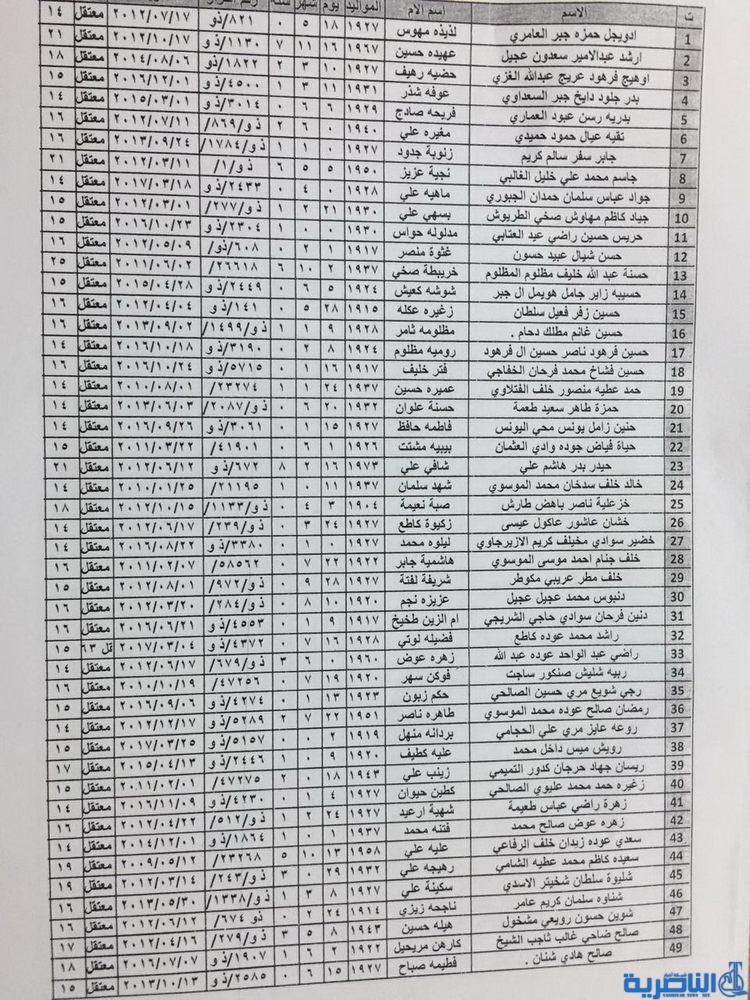 ت الاسم اسم الام المواليد يوم شهر سنة رقم القرار
1 ادويجل حمزه جبر العامري لذيذه مهوس ١٩٢٧ ١٨ ٥ ٠ ٨٢١/ذو ٢٠١٢/٠٧/١٧ معتقل ١٤
2 ارشد عبدالامير سعدون عجيل عهيده حسين ١٩٦٧ ١٦ ١١ ٧ ١١٣٠/ذ و ٢٠١٢/١٠/١٧ معتقل ٢١
3 اوهيج فرهود عريج عبدالله الغزي حضيه رهيف ١٩٢٧ ١٠ ٣ ٢ ١٨٢٢/ذو ٢٠١٤/٠٨/٠٦ معتقل ١٨
4 بدر جلود دايخ جبر السعداوي عوفه شذر ١٩٣١ ١١ ٣ ٤٥٠٠/ذو ٢٠١٦/١٢/٠١ معتقل ١٥
5 بدريه رسن عبود العماري فريحه صادج ١٩٢٩ ٦ ٦ ٠ ٣٠١٤/ذو ٢٠١٥/٠٣/٠١ معتقل ١٤
6 تقيه عيال حمود حميدي مغيره علي ١٩٤٠ ٠ ٦ ٢ ذو/٨٦٩/ ٢٠١٢/٠٧/١١ معتقل ١٦
7 جابر سفر سالم كريم زنوبة جدود ١٩٢٧ ٠ ١ ١ ذو/١٧٨٤/ ٢٠١٣/٠٩/٢٤ معتقل ١٦
8 جاسم محمد علي خليل الغالبي نجية عزيز ١٩٥٠ ٥ ٥ ٦ ذو/١/ ٢٠١٢/٠٣/١١ معتقل ٢١
9 جواد عباس سلمان حمدان الجبوري ماهيه علي ١٩٢٨ ٠ ٤ ٠ ٢٤٣٣/ذو ٢٠١٧/٠٣/١٨ معتقل ١٤
10 جياد كاظم مهاوش صخي الطريوش بسهي علي ١٩٣٠ ٢١ ٢ ١ ذو/٢٧٧/ ٢٠١٢/٠٣/٠١ معتقل ١٥
11 حريس حسين راضي عبد العتابي مدلوله حواس ١٩٣٠ ٠ ٠ ٢٣٠٤/ذو ٢٠١٦/١٠/٢٣ معتقل ١٥
12 حسن شيال عبيد حسون غثوة منصر ١٩١٧ ١ ٢ ٠ ٦٠٨/ذو/ ٢٠١٢/٠٥/٠٩ معتقل ١٦
13 حسنة عبد الله خليف مظلوم المظلوم خريبطة صخي ١٩٣٧ ٢ ١٠ ٦ ٢٦٦١٨/ ٢٠١١/٠٦/٠٢ معتقل ٢٥
14 حسيبه زاير جامل هويمل ال جبر شوشه كعيش ١٩٢٤ ٥ ٦ ٠ ٢٤٤٩/ذو ٢٠١٥/٠٤/٢٨ معتقل ١٥
15 حسين زفر فعيل سلطان زغيره عكله ١٩١٥ ٢٨ ٥ ٠ ١٤١/ذو ٢٠١٢/٠٤/٠٤ معتقل ١٦
16 حسين غانم مطلك دحام . مظلومه ثامر ١٩٢٨ ٩ ١ ١ ذو/١٤٩٩/ ٢٠١٣/٠٩/٠٢ معتقل ١٦
17 حسين فرهود ناصر حسين ال فرهود روميه مظلوم ١٩٢٤ ٨ ٢ ٠ ٣١٩٠/ذو ٢٠١٦/١٠/١٨ معتقل ١٤
18 حسين فشاخ محمد فرحان الخفاجي فتر خليف ١٩١٧ ١٦ ١ ٠ ٥٧١٥/ذو ٢٠١٦/١٠/٢٤ معتقل ١٦
19 حمد عطيه منصور خلف الفتلاوي عميره حسين ١٩٣٧ ٢٤ ١ ١ ٢٣٢٧٤/ ٢٠١٠/٠٨/٠١ معتقل ١٤
20 حمزة طاهر سعيد طعمة حسنة علوان ١٩٣٢ ٢٠ ٦ ٠ ذو/٢٠٨٧/ ٢٠١٣/٠٦/٠٣ معتقل ١٤
21 حنين زامل يونس محي اليونس فاطمه حافظ ١٩٢٧ ١٥ ١١ ٠ ٣٠٦١/ذو ٢٠١٦/٠٩/٢٦ معتقل ١٤
22 حياة فياض جوده وادي العثمان بيبيه مشتت ١٩٢٦ ١ ٦ ٠ ٤١٩٠١/ ٢٠١١/٠٣/٢٢ معتقل ١٥
23 حيدر بدر هاشم علي شافي علي ١٩٧٣ ١٦ ٢ ٨ ٦٧٢/ذو ٢٠١٢/٠٦/١٢ معتقل ٢١
24 خالد خلف سدخان محمد الموسوي شهد سلمان ١٩٣٧ ١١ ٠ ١ ٢١١٩٥/ ٢٠١٠/٠١/٢٥ معتقل ١٤
25 خزعلية ناصر باهض طارش صبة نعيمة ١٩٠٤ ٣ ٤ ٠ ذو/١١٣٣/ ٢٠١٢/١٠/١٥ معتقل ١٨
26 خشان عاشور عاكول عيسى زكيوة كاطع ١٩٢٧ ٢٤ ٣ ٠ ذو/٢٣٩/ ٢٠١٢/٠٦/١٧ معتقل ١٤
27 خضير سوادي مخيلف كريم الازيرجاوي ليلوه محمد ١٩٢٧ ٠ ١ ٠ ٣٣٨٠/ذو ٢٠١٦/٠٨/٢٢ معتقل ١٤
28 خلف جنام احمد موسى الموسوي هاشمية جابر ١٩٢٢ ٢٢ ٧ ٠ ٥٨٥٦٢/ ٢٠١١/٠٢/٠٧ معتقل ١٦
29 خلف مطر عريبي مكوطر شريفة لفتة ١٩٢٧ ٢٨ ٩ ٠ ذو/٩٧٢/ ٢٠١٢/٠٨/٠١ معتقل ١٥
30 دنبوس محمد عجيل عجيل عزيزه نجم ١٩٢٠ ١٠ ٨ ٠ ذو/٢٨٤/ ٢٠١٢/٠٣/٢٠ معتقل ١٦
31 دنين فرحان سوادي حاجي الشريجي ام الزين طخيخ ١٩١٧ ٩ ١ ٠ ٤٥٥٣/ذو ٢٠١٦/٠٦/٢١ معتقل ١٦
32 راشد محمد عوده كاطع فضيله لوتي ١٩٢٨ ١٦ ٧ ٠ ٤٣٧٢/ذو ٢٠١٧/٠٣/٠٤ قل ٦٣ ١٥
33 راضي عبد الواحد عوده عبد الله زهره عوض ١٩٦٠ ٠ ٦ ٣ ذو/٦٧٩/ ٢٠١٢/٠٦/١٧ معتقل ١٤
34 ربيه شليش صنكور ساجت فوكن سهر ١٩٢٠ ١٩ ٧ ٠ ٤٧٢٥٦/ ٢٠١٠/١٠/١٩ معتقل ١٦
35 رجي شويع مري حسين الصالحي حكم زبون ١٩٢٣ ١٣ ١ ٠ ٤٢٧٤/ذو ٢٠١٦/٠٩/٠٦ معتقل ١٥
36 رمضان صالح عوده محمد الموسوي طاهره ناصر ١٩٥١ ٢٢ ٧ ٢ ٥٢٨٩/ذو ٢٠١٢/١٢/١٧ معتقل ١٤
37 روعه عايز مري علي الحجامي بردانه منهل ١٩١٩ ٢ ٠ ٠ ٥١٥٧/ذو ٢٠١٧/٠٣/٢٥ معتقل ١٥
38 رويش ميس داخل محمد عليه كطيف ١٩٢٠ ٩ ١ ٢٤٤٦/ذو ٢٠١٥/٠٤/١٣ معتقل ١٧
39 ريسان جهاد حرجان كدور التميمي زينب علي ١٩٤٣ ١٨ ٠ ٢ ٤٧٢٧٥/ ٢٠١١/٠٢/٠١ معتقل ١٥
40 زغيره حمد محمد عليوي الصالحي كطين حيوان ١٩٢٧ ٤ ١ ٤٢٣٠/ذو ٢٠١٦/١١/٠٩ معتقل ١٤
41 زهرة راضي عباس طعيمة شهية ارعيد ١٩٢٧ ٢٤ ٢ ١ ذو/٥١٢/ ٢٠١٢/٠٤/٢٢ معتقل ١٦
42 زهره عوض صالح محمد فتنه محمد ١٩٣٧ ١ ٠ ١ ١٨٦٤/ذو ٢٠١٤/١٢/٠١ معتقل ١٤
43 سعدي عوده زبدان خلف الرفاعي عليه علي ١٩٥٨ ١٣ ١٠ ٥ ٢٣٢٦٨/ ٢٠٠٩/٠٥/١٢ معتقل ١٩
44 سعيده كاظم محمد عطيه الشامي رهيجه علي ١٩٣٢ ٢٩ ٣ ٠ ذو/٢٤٣/ ٢٠١٢/٠٣/١٤ معتقل ١٩
45 شليوة سلطان شخيتر الاسدي سكينة علي ١٩٢٧ ٨ ٣ ١ ذو/١٣٣٨/ ٢٠١٣/٠٥/٣٠ معتقل ١٦
46 شناوه سلمان كريم عامر ناجحه زيزي ١٩١٤ ٢٤ ٢ ٠ ذو ٦٧٤/ ٢٠١٢/٠٦/١٢ معتقل ١٦
47 شوين حسون رويعي مشخول هيله حسين ١٩٤٣ ٨ ٥ ٣ ذو/٢٧٩/ ٢٠١٢/٠٤/١٦ معتقل ١٧
48 صالح ضاحي غالب ثاجب الشيخ كارهن مريحيل ١٩٢٢ ٢ ٦ ١ ١٩٠٢/ذو ٢٠١٦/٠٧/٠٧ معتقل ١٨
49 صالح هادي شنان . فطيمه صباح ١٩٢٧ ١٥ ٦ ٠ ٢٥٨٥/ذو ٢٠١٣/١٠/١٣ معتقل ١٥
شبكة اخبار
الناصرية
NASIRIYAH NEWS NET